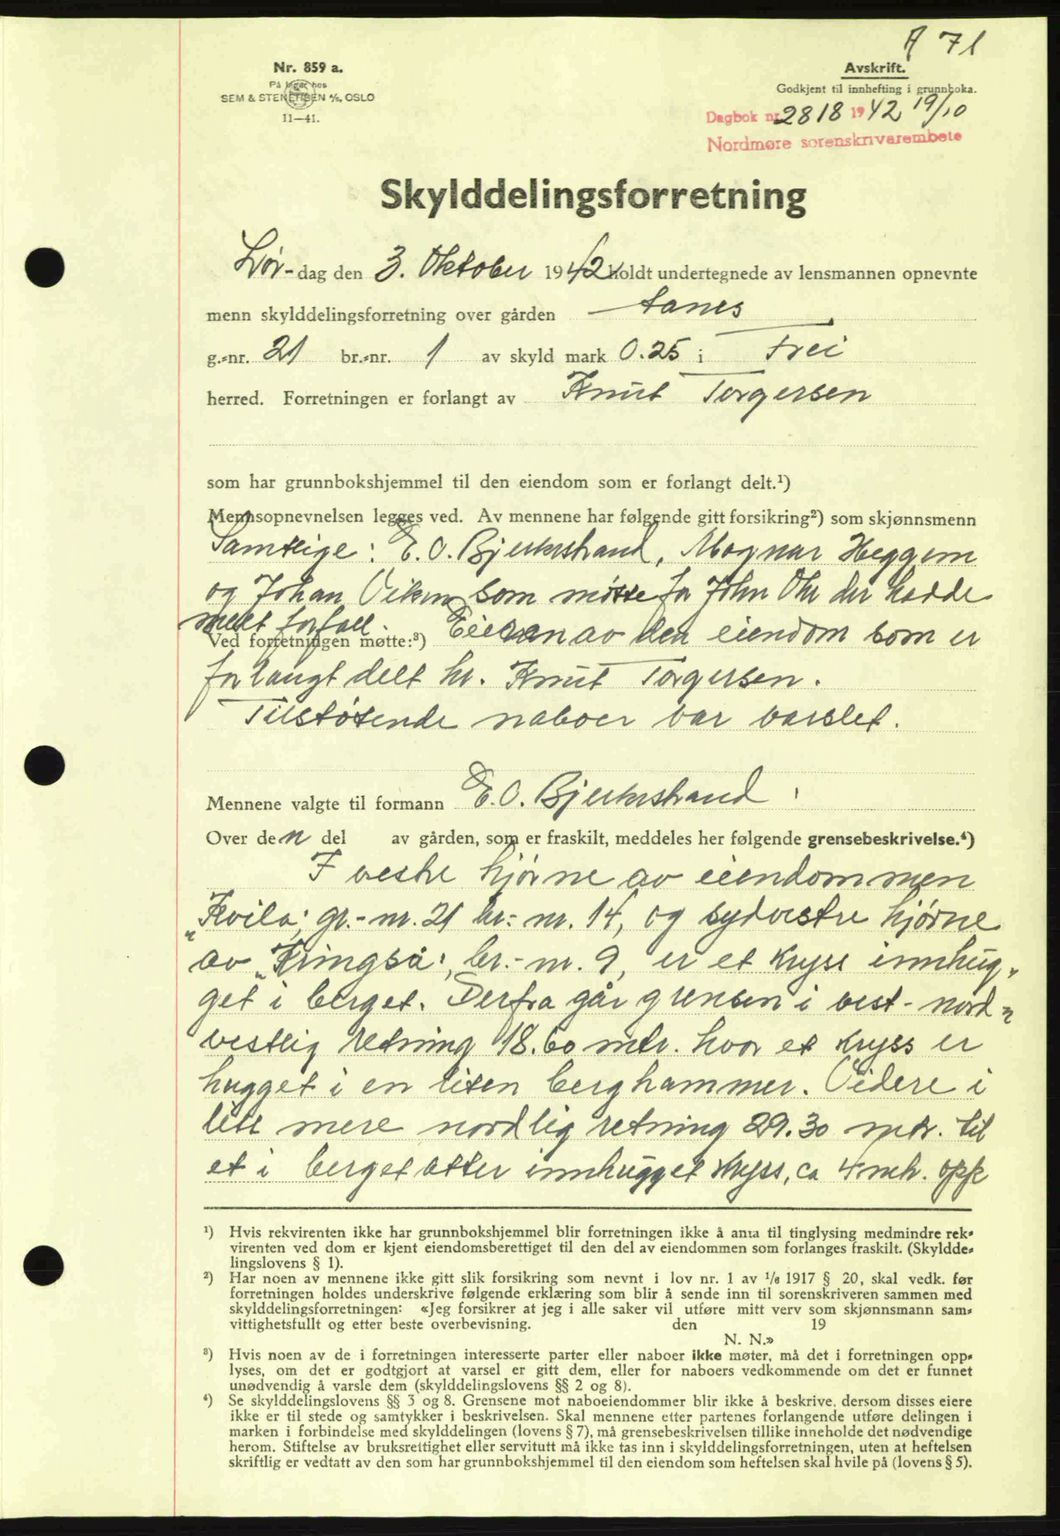 A 71
Nr. 859 a.
På lager hos
SEM & STENERSEN A/S, OSLO
11—41.
Avskrift.
Godkjent til innhefting i grunnboka.
Dagbok nr. 2818 1942 19/10
Nordmøre sorenskrivarembete
Skylddelingsforretning
Lør-dag den 3. Oktober 1942 holdt undertegnede av lensmannen opnevnte
menn skylddelingsforretning over gården Aanes
g.-nr. 21 br.-nr. 1 av skyld mark 0.25 i Frei
herred. Forretningen er forlangt av Knut Torgersen
som har grunnbokshjemmel til den eiendom som er forlangt delt.¹)
Mennsopnevnelsen legges ved. Av mennene har følgende gitt forsikring²) som skjønnsmenn
Samtlige: E. O. Bjerkestrand, Magnar Heggem
og Johan Viken som møtte for John Ohr der hadde
meldt forfall.
Ved forretningen møtte:³) Eieren av den eiendom som er
forlangt delt hr. Knut Torgersen.
Tilstøtende naboer var varslet.
Mennene valgte til formann E. O. Bjerkestrand
Over den del av gården, som er fraskilt, meddeles her følgende grensebeskrivelse.⁴)
I vestre hjørne av eiendommen
"Kvila", gr.-nr. 21 br.-nr. 14, og sydvestre hjørne
av "Kringså", br.-nr. 9, er et kryss innhug-
get i berget. Derfra går grensen i vest-nord-
vestlig retning 18.60 mtr. hvor et kryss er
hugget i en liten berghammer. Videre i
litt mere nordlig retning 29.30 mtr. til
et i berget atter innhugget kryss, ca 4 mtr. opp
¹) Hvis rekvirenten ikke har grunnbokshjemmel blir forretningen ikke å anta til tinglysing medmindre rek-
virenten ved dom er kjent eiendomsberettiget til den del av eiendommen som forlanges fraskilt. (Skyldde-
lingslovens § 1).
²) Har noen av mennene ikke gitt slik forsikring som nevnt i lov nr. 1 av ¹/₆ 1917 § 20, skal vedk. før
forretningen holdes underskrive følgende erklæring som blir å sende inn til sorenskriveren sammen med
skylddelingsforretningen: «Jeg forsikrer at jeg i alle saker vil utføre mitt verv som skjønnsmann sam-
vittighetsfullt og etter beste overbevisning. den 19
N. N.»
³) Hvis noen av de i forretningen interesserte parter eller naboer ikke møter, må det i forretningen opp-
lyses, om det er godtgjort at varsel er gitt dem, eller for naboers vedkommende om det er funnet
unødvendig å varsle dem (skylddelingslovens §§ 2 og 8).
⁴) Se skylddelingslovens §§ 3 og 8. Grensene mot naboeiendommer blir ikke å beskrive, dersom disses eiere
ikke er til stede og samtykker i beskrivelsen. Skal mennene etter partenes forlangende utføre delingen i
marken i forbindelse med skylddelingen (lovens § 7), må grensebeskrivelsen tillike inneholde det nødvendige
herom. Stiftelse av bruksrettighet eller servitutt må ikke tas inn i skylddelingsforretningen, uten at heftelsen
skriftlig er vedtatt av den som har grunnbokshjemmel til den eiendom som heftelsen skal hvile på (lovens § 5).